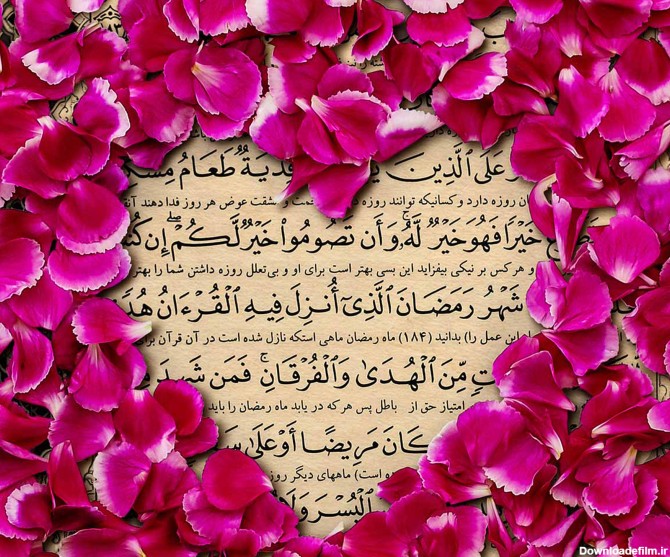 عَلَى ٱلَّذِينَ فِدْيَةٌ طَعَامُ
روزه دارد و کسانیکه توانند روزه مشقت عوض هر روز فدا دهند
خَيْرًا فَهُوَ خَيْرٌ لَّهُۥ وَأَن تَصُومُوا۟ خَيْرٌ لَّكُمْ إِن
و هر کس بر نیکی بیفزاید این بسی بهتر است برای او و بی‌تعلل روزه داشتن شما را بهتر
شَهْرُ رَمَضَانَ ٱلَّذِىٓ أُنزِلَ فِيهِ ٱلْقُرْءَانُ
این عمل را) بدانید (۱۸۴) ماه رمضان ماهی استکه نازل شده است در آن قرآن
مِّنَ ٱلْهُدَىٰ وَٱلْفُرْقَانِ ۚ فَمَن شَهِدَ
امتیاز حق از باطل پس هر که در یابد ماه رمضان را باید
كَانَ مَرِيضًا أَوْ عَلَىٰ
است) ماههای دیگر روزه
ٱلْيُسْرَ وَلَا
Downloadefilm.ir